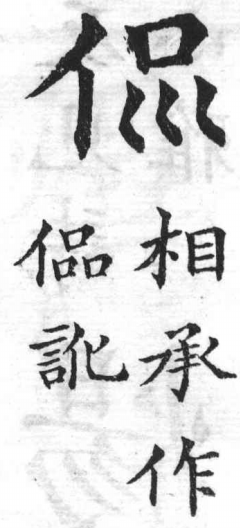 侃
相承作
偘訛